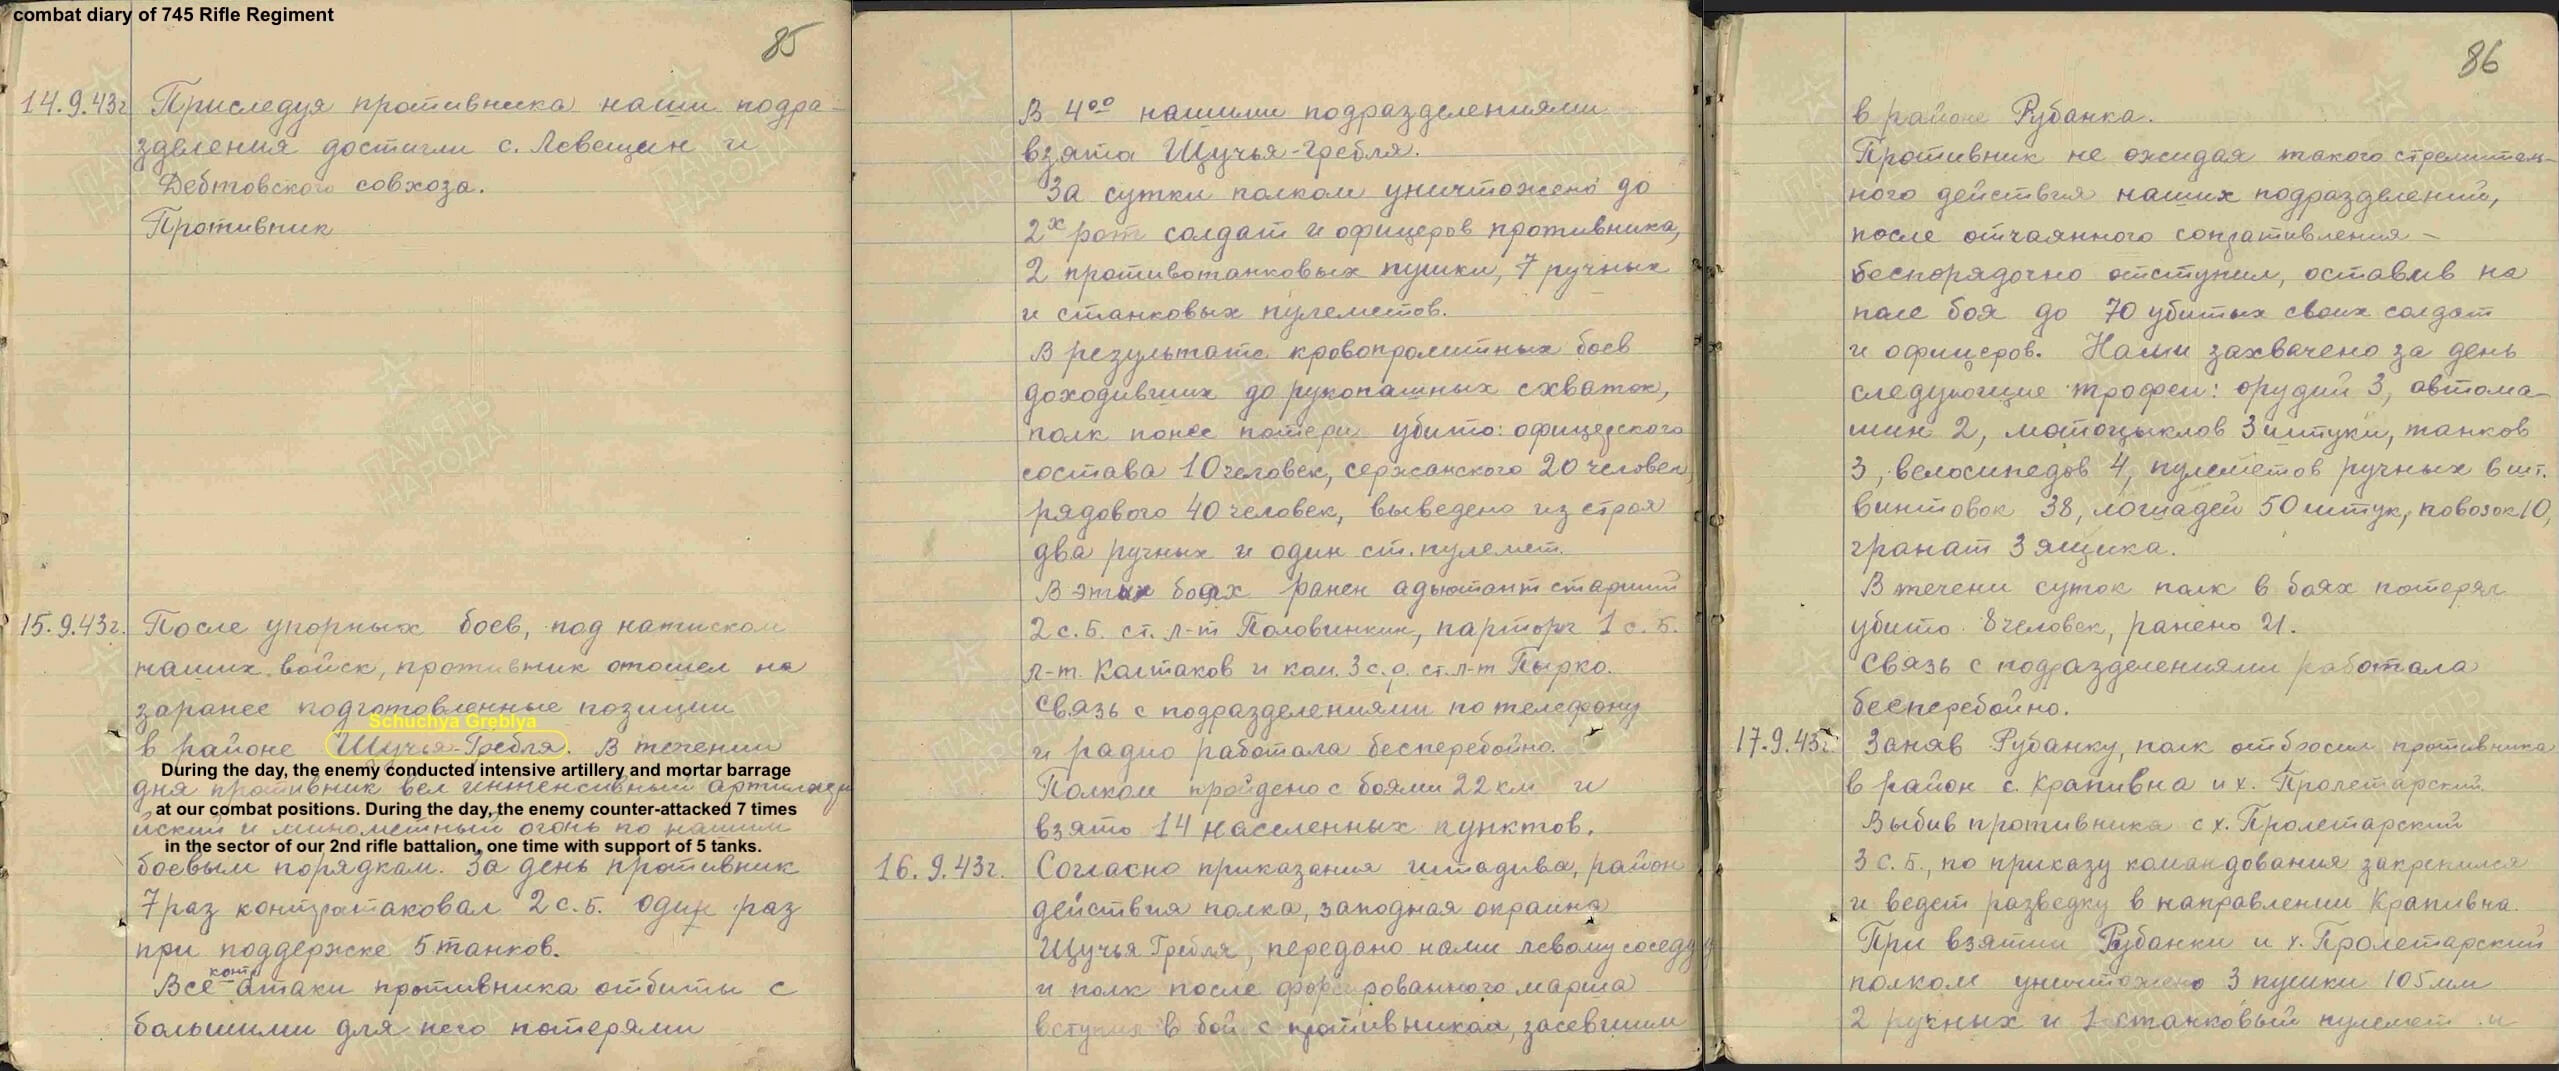 combat diary of 745 Rifle Regiment
85
14.9.43г Приследуя противника наши подра-
зделения достигли с. Левещин и
Дебтовского совхоза.
Противник
15.9.43г. После упорных боев, под натиском
наших войск, противник отошел на
заранее подготовленные позиции
Schuchya Greblya
в районе Щучья-Гребля. В течении
During the day, the enemy conducted intensive artillery and mortar barrage
дня противник вел интенсивный артиллери
at our combat positions. During the day, the enemy counter-attacked 7 times
йский и минометный огонь по нашим
in the sector of our 2nd rifle battalion, one time with support of 5 tanks.
боевым порядкам. За день противник
7 раз контратаковал 2 с.б. один раз
при поддержке 5 танков.
Все контр-атаки противника отбиты с
большими для него потерями
В 4⁰⁰ нашими подразделениями
взята Щучья-Гребля.
За сутки полком уничтожено до
2х рот солдат и офицеров противника,
2 противотанковых пушки, 7 ручных
и станковых пулеметов.
В результате кровопролитных боев
доходивших до рукопашных схваток,
полк понес потери убито: офицерского
состава 10 человек, сержанского 20 человек,
рядового 40 человек, выведено из строя
два ручных и один ст. пулемет.
В этих боях ранен адьютант старший
2 с.б. ст. л-т Половинкин, парторг 1 с.б.
л-т. Колтаков и ком. 3 с.р. ст. л-т Пырко.
Связь с подразделениями по телефону
и радио работала бесперебойно.
Полком пройдено с боями 22 км и
взято 14 населенных пунктов.
16.9.43г. Согласно приказания штадива, район
действия полка, западная окраина
Щучья Гребля, передано нами левому соседу
и полк после форсированного марша
вступил в бой с противником, засевшим
86
в районе Рубанка.
Противник не ожидая такого стремитель-
ного действия наших подразделений,
после отчаянного сопративления -
беспорядочно отступил, оставив на
поле боя до 70 убитых своих солдат
и офицеров. Нами захвачено за день
следующие трофеи: орудий 3, автома-
шин 2, мотоцыклов 3 штуки, танков
3, велосипедов 4, пулеметов ручных 6 шт.
винтовок 38, лошадей 50 штук, повозок 10,
гранат 3 ящика.
В течени суток полк в боях потерял
убито 8 человек, ранено 21.
Связь с подразделениями работала
бесперебойно.
17.9.43г. Заняв Рубанку, полк отбросил противника
в район с. Крапивна и х. Пролетарский.
Выбив противника с х. Пролетарский
3 с.б., по приказу командования закрепился
и ведет разведку в направлении Крапивна.
При взятии Рубанки и х. Пролетарский
полком уничтожено 3 пушки 105 мм
2 ручных и 1 станковый пулемет и